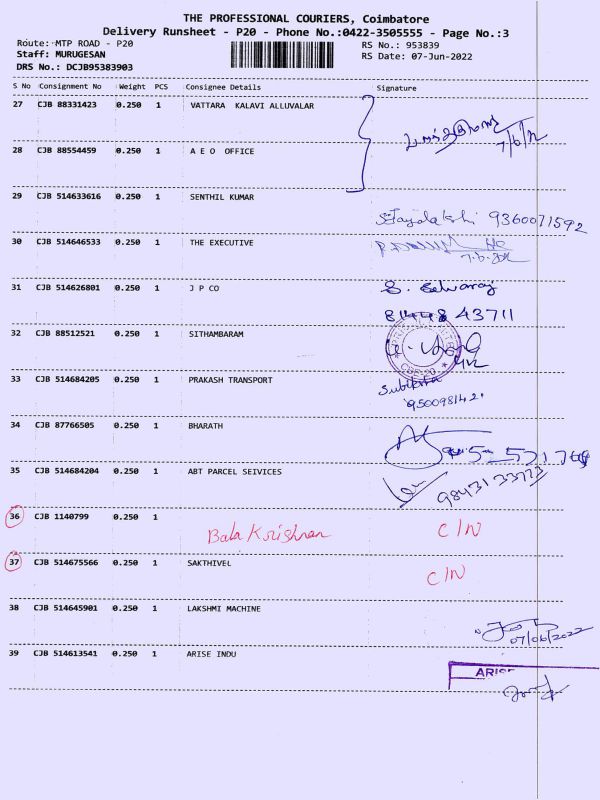 THE PROFESSIONAL COURIERS, Coimbatore
Delivery Runsheet - P20 - Phone No.:0422-3505555 - Page No.:3
Route: MTP ROAD - P20
RS No.: 953839
Staff: MURUGESAN
RS Date: 07-Jun-2022
DRS No.: DCJB95383903
S No Consignment No Weight PCS Consignee Details Signature
27 CJB 88331423 0.250 1 VATTARA KALAVI ALLUVALAR
28 CJB 88554459 0.250 1 A E O OFFICE
29 CJB 514633616 0.250 1 SENTHIL KUMAR
9360071592
30 CJB 514646533 0.250 1 THE EXECUTIVE
31 CJB 514626801 0.250 1 J P CO S. Selvaraj
81448 43711
32 CJB 88512521 0.250 1 SITHAMBARAM
33 CJB 514684205 0.250 1 PRAKASH TRANSPORT
34 CJB 87766505 0.250 1 BHARATH
35 CJB 514684204 0.250 1 ABT PARCEL SEIVICES
36 CJB 1140799 0.250 1
Bala Krishnan C/N
37 CJB 514675566 0.250 1 SAKTHIVEL C/N
38 CJB 514645901 0.250 1 LAKSHMI MACHINE
07/06/2022
39 CJB 514613541 0.250 1 ARISE INDU